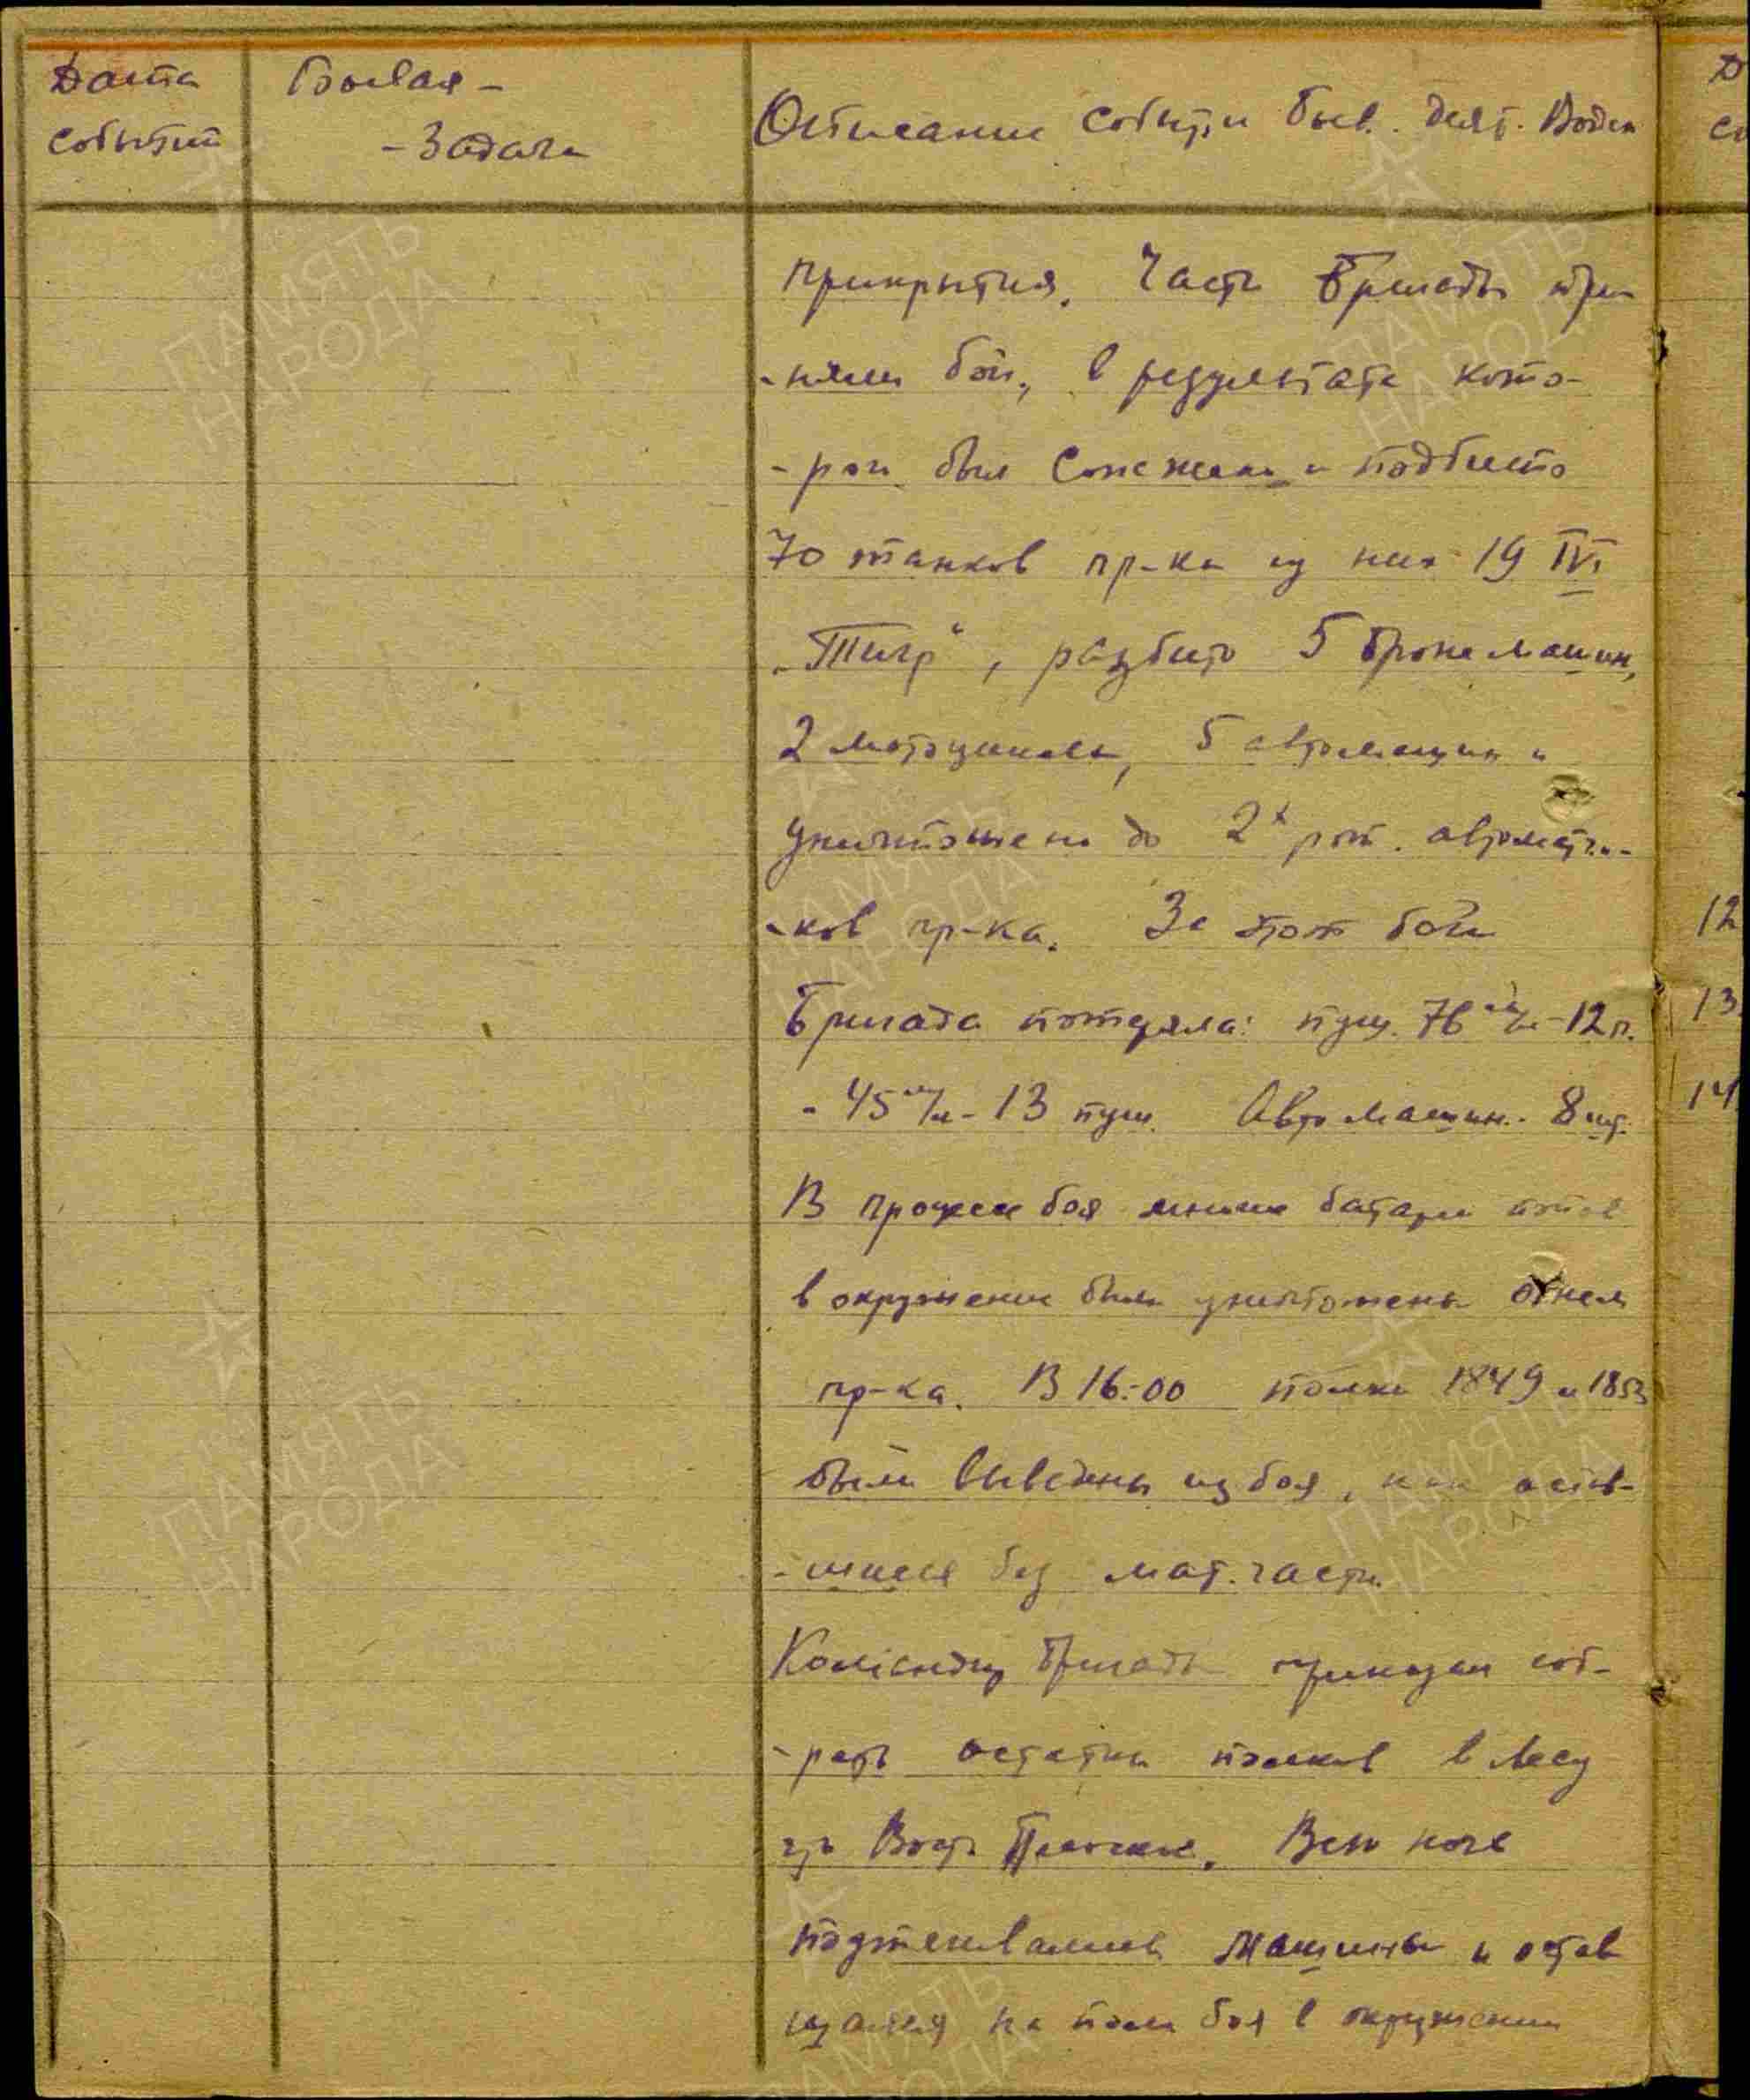 Дата
событий
Боевая -
- Задача
Описание событи боев. деят. Войск
прикрытия. Части Бригады при-
-няли бой, в результате кото-
-рой был сожжено и подбито
70 танков пр-ка из них 19 Т VI
„Тигр“, разбито 5 бронемашин,
2 мотоцикла, 5 автомашин и
уничтожено до 2х рот. автоматчи-
-ков пр-ка. За этот бой
Бригада потеряла: пуш. 76 м/м - 12 п.
- 45 м/м - 13 пуш. Автомашин - 8 шт.
В процессе боя многие батареи
в окружение были уничтожены огнем
пр-ка. В 16:00 полки 1849 и 1853
были выведены из боя, как остав-
-шиеся без мат. части.
Командир Бригады приказал соб-
-рать остатки полков в лесу
Вост. Всю ночь
подтягивались машины и остав
на поле боя в окружении
Д
со
12
13
14
ПАМЯТЬ
НАРОДА
ПАМЯТЬ
НАРОДА
ПАМЯТЬ
НАРОДА
ПАМЯТЬ
НАРОДА
ПАМЯТЬ
НАРОДА
ПАМЯТЬ
НАРОДА